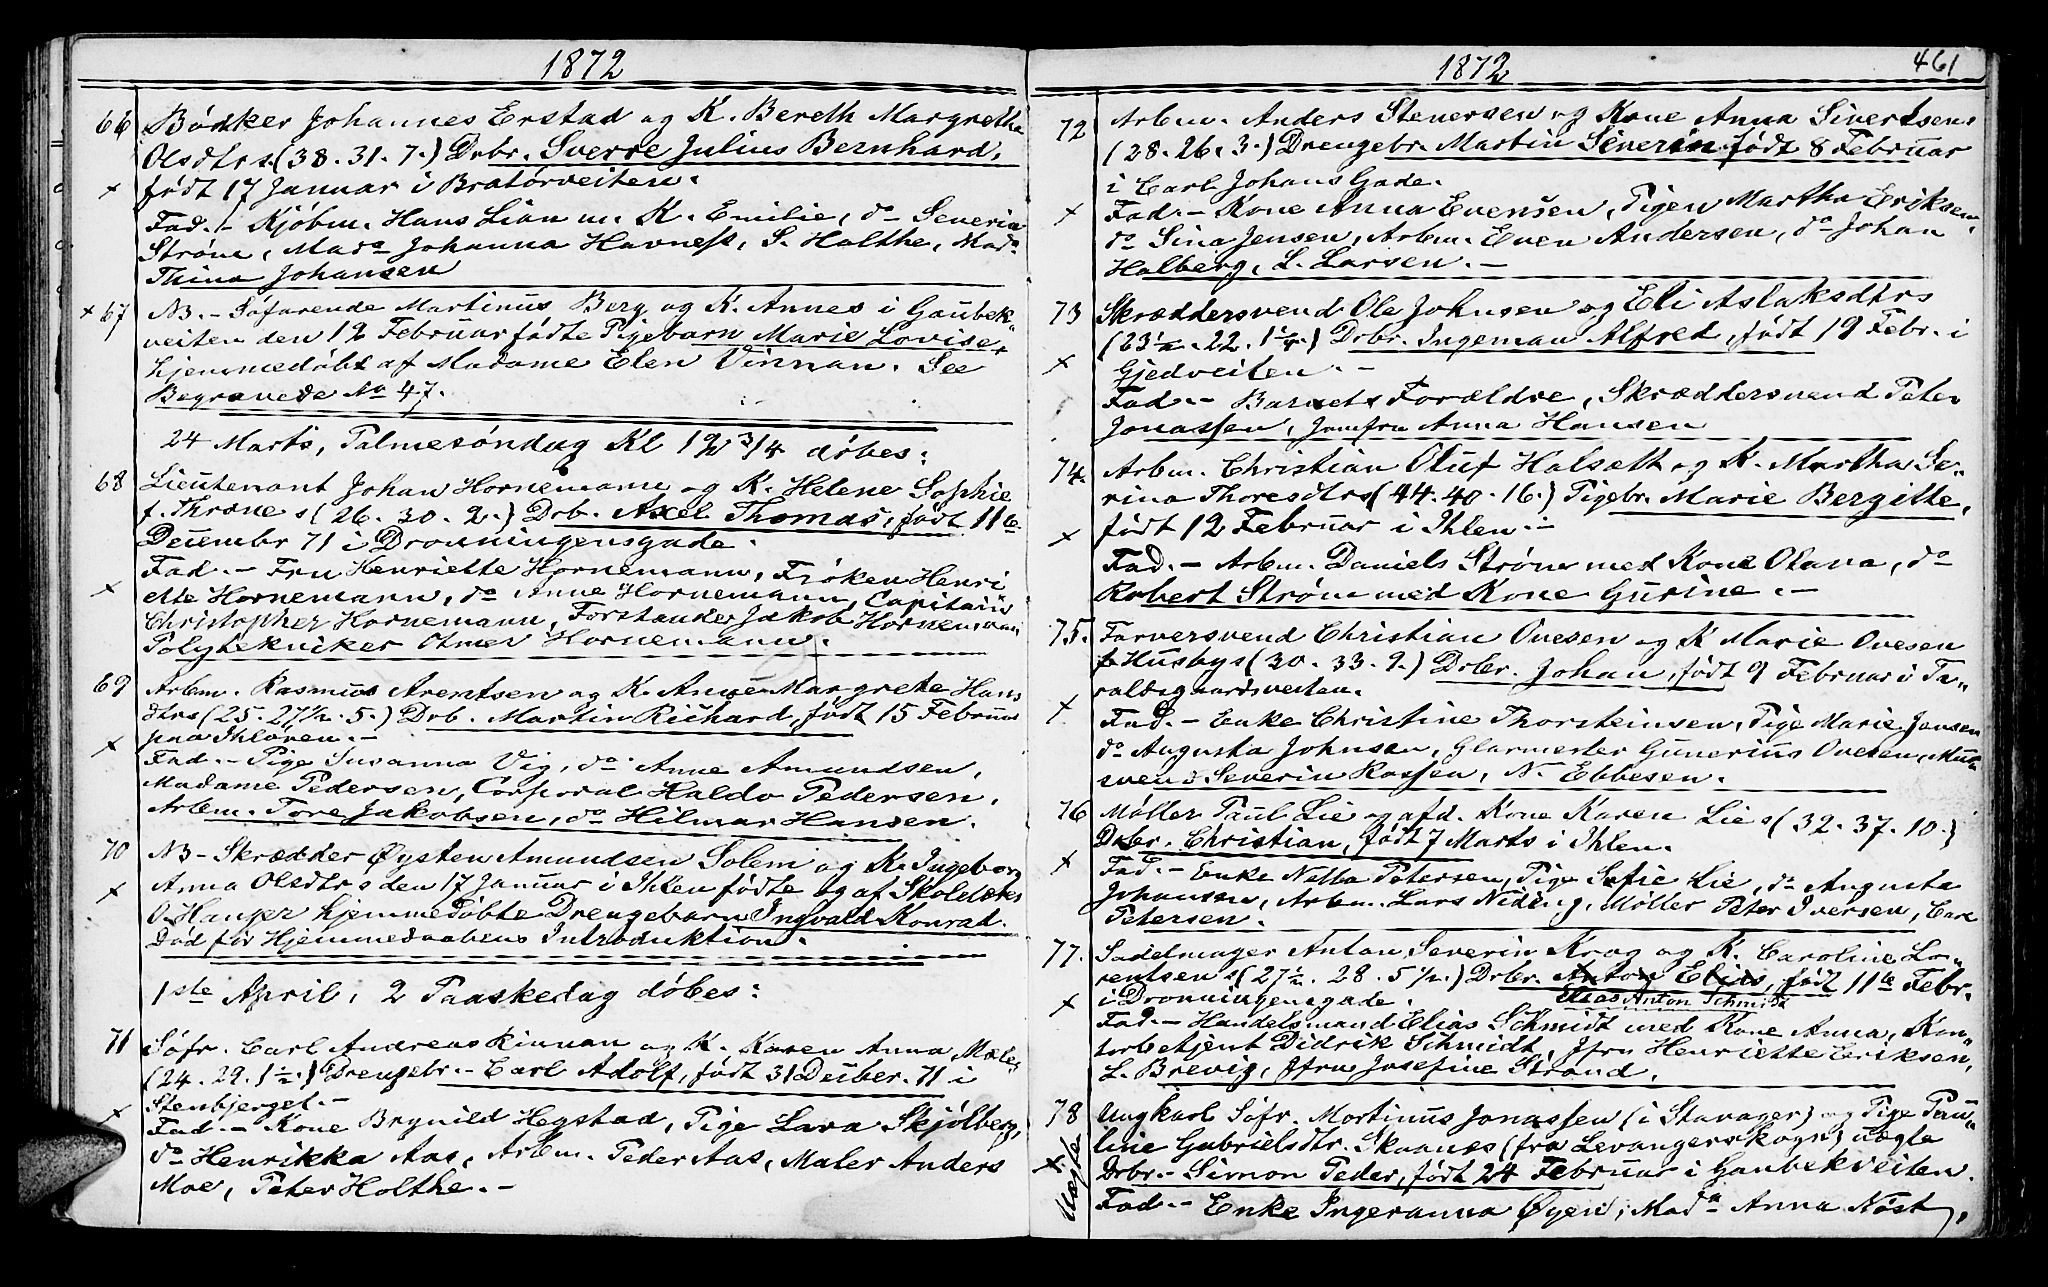 1872
66 Bödker Johannes Erstad og K. Bereth Margretha
Olsdtrs (38. 31. 7.) Drbr. Sverre Julius Bernhard,
× födt 17 Januar i Bratörveiten.
Fad. - Kjöbm. Hans Lian m. K. Emilie, do Severin
Ström, Mada Johanna Havness, S. Holthe, Mada
Thina Johansen
× 67 NB. - Söfarende Martinus Berg og K. Annes i Gaubek-
veiten den 12 Februar födte Pigebarn Marie Lovise,
hjemmedöbt af Madame Elen Vinnan. See
Begravede No 47.
24 Marts, Palmesöndag Kl 12 3/4 döbes:
68 Lieutenant Johan Hornemann og K. Helene Sophie
f. Thrane s (26. 30. 2.) Drb. Axel Thomas, födt 11te
Decembr 71 i Dronningensgade.
Fad. - Fru Henriette Hornemann, Fröken Henri
× ette Hornemann, do Anne Hornemann, Capitain
Christopher Hornemann, Forstander Jakob Hornemann
Polytekniker Otmer Hornemann.
69 Arbm. Rasmus Arentsen og K. Anne Margrete Hans
dtrs (25. 27½. 5.) Drb. Martin Richard, födt 15 Februar
× paa Ihlören. -
Fad. - Pige Susanna Vig, do Anne Amundsen,
Madame Pedersen, Corporal Haldo Pedersen,
Arbm. Tore Jakobsen, do Hilmar Hansen.
70 NB - Skrædder Øysten Amundsen Solem og K. Ingeborg
× Anna Olsdtrs den 17 Januar i Ihlen födte og af Skolelærer
O. Hanger hjemmedöbte Drengebarn Ingvald Konrad.
Död för Hjemmedaabens Introduktion.
1ste April, 2 Paaskedag döbes:
71 Söfr. Carl Andreas Rinnan og K. Karen Anna Mæle s
(24. 29. 1½.) Drengebr. - Carl Adolf, födt 31 Decber. 71 i
Stenbjerget. -
× Fad. - Kone Brynild Hegstad, Pige Lava Skjölberg,
do Henrikka Aas, Arbm. Peder Aas, Maler Anders
Moe, Peter Holthe. -
1872
461
72 Arbm. Anders Stenersen og Kone Anna Sivertsens
(28. 26. 3.) Drengebr. Martin Severin födt 8 Februar
i Carl Johans Gade.
× Fad. - Kone Anna Evensen, Pigen Martha Eriksen,
do Sina Jensen, Arbm. Even Andersen, do Johan
Halberg, L. Larsen. -
73 Skræddersvend Ole Johnsen og Eli Aslaksdtrs
(23½. 22. 1¼.) Drbr. Ingeman Alfred, födt 19 Febr. i
× Gjedveiten. -
Fad. - Barnets Forældre, Skræddersvend Peter
Jonassen, Jomfru Anna Hansen
74. Arbm. Christian Oluf Halsætt og K. Martha Se-
rina Thoresdtrs (44. 40. 16.) Pigebr. Marie Bergitte,
× födt 12 Februar i Ihlen. -
Fad. - Arbm. Daniels Ström med Kone Olava, do
Robert Ström med Kone Gurine. -
75. Farversvend Christian Ovesen og K Marie Ovesen
f. Husbys (30. 33. 9.) Drbr. Johan, födt 9 Februar i Ta-
raldsgaardsveiten.
× Fad. - Enke Christine Thorsteinsen, Pige Marie Jensen
do Augusta Johnsen, Glarmester Gunerius Ovesen, Mur-
svend Severin Rossen, N. Ebbesen.
76 Möller Paul Lie og afd. Kone Karen Lie s (32. 37. 10.)
Drbr. Christian, födt 7 Marts i Ihlen.
× Fad. - Enke Netta Petersen, Pige Sofie Lie, do Augusta
Johansen, Arbm. Lars Niding, Möller Peter Iversen, Carl
Petersen.
77. Sadelmager Anton Severin Krog og K. Caroline Lo-
rentsen s (27½. 28. 5½.) Drbr. Anton Elias, födt 11te Febr.
× i Dronningensgade. Elias Anton Schmidt
Fad. - Handelsmand Elias Schmidt med Kone Anna, Kon-
torbetjent Didrik Schmidt, Jfru Henriette Eriksen,
L. Brevig, Jfru Josefine Strand.
78 Ungkarl Söfr. Martinus Jonassen (i Stavager) og Pige Pau-
line Gabrielsdtr. Skaanes (fra Levangerskogn) uægte
× Uægte Drbr. - Simon Peder, födt 24 Februar i Gaubekveiten.
Fad. - Enke Ingeranna Øyen, Mada Anna Näst,